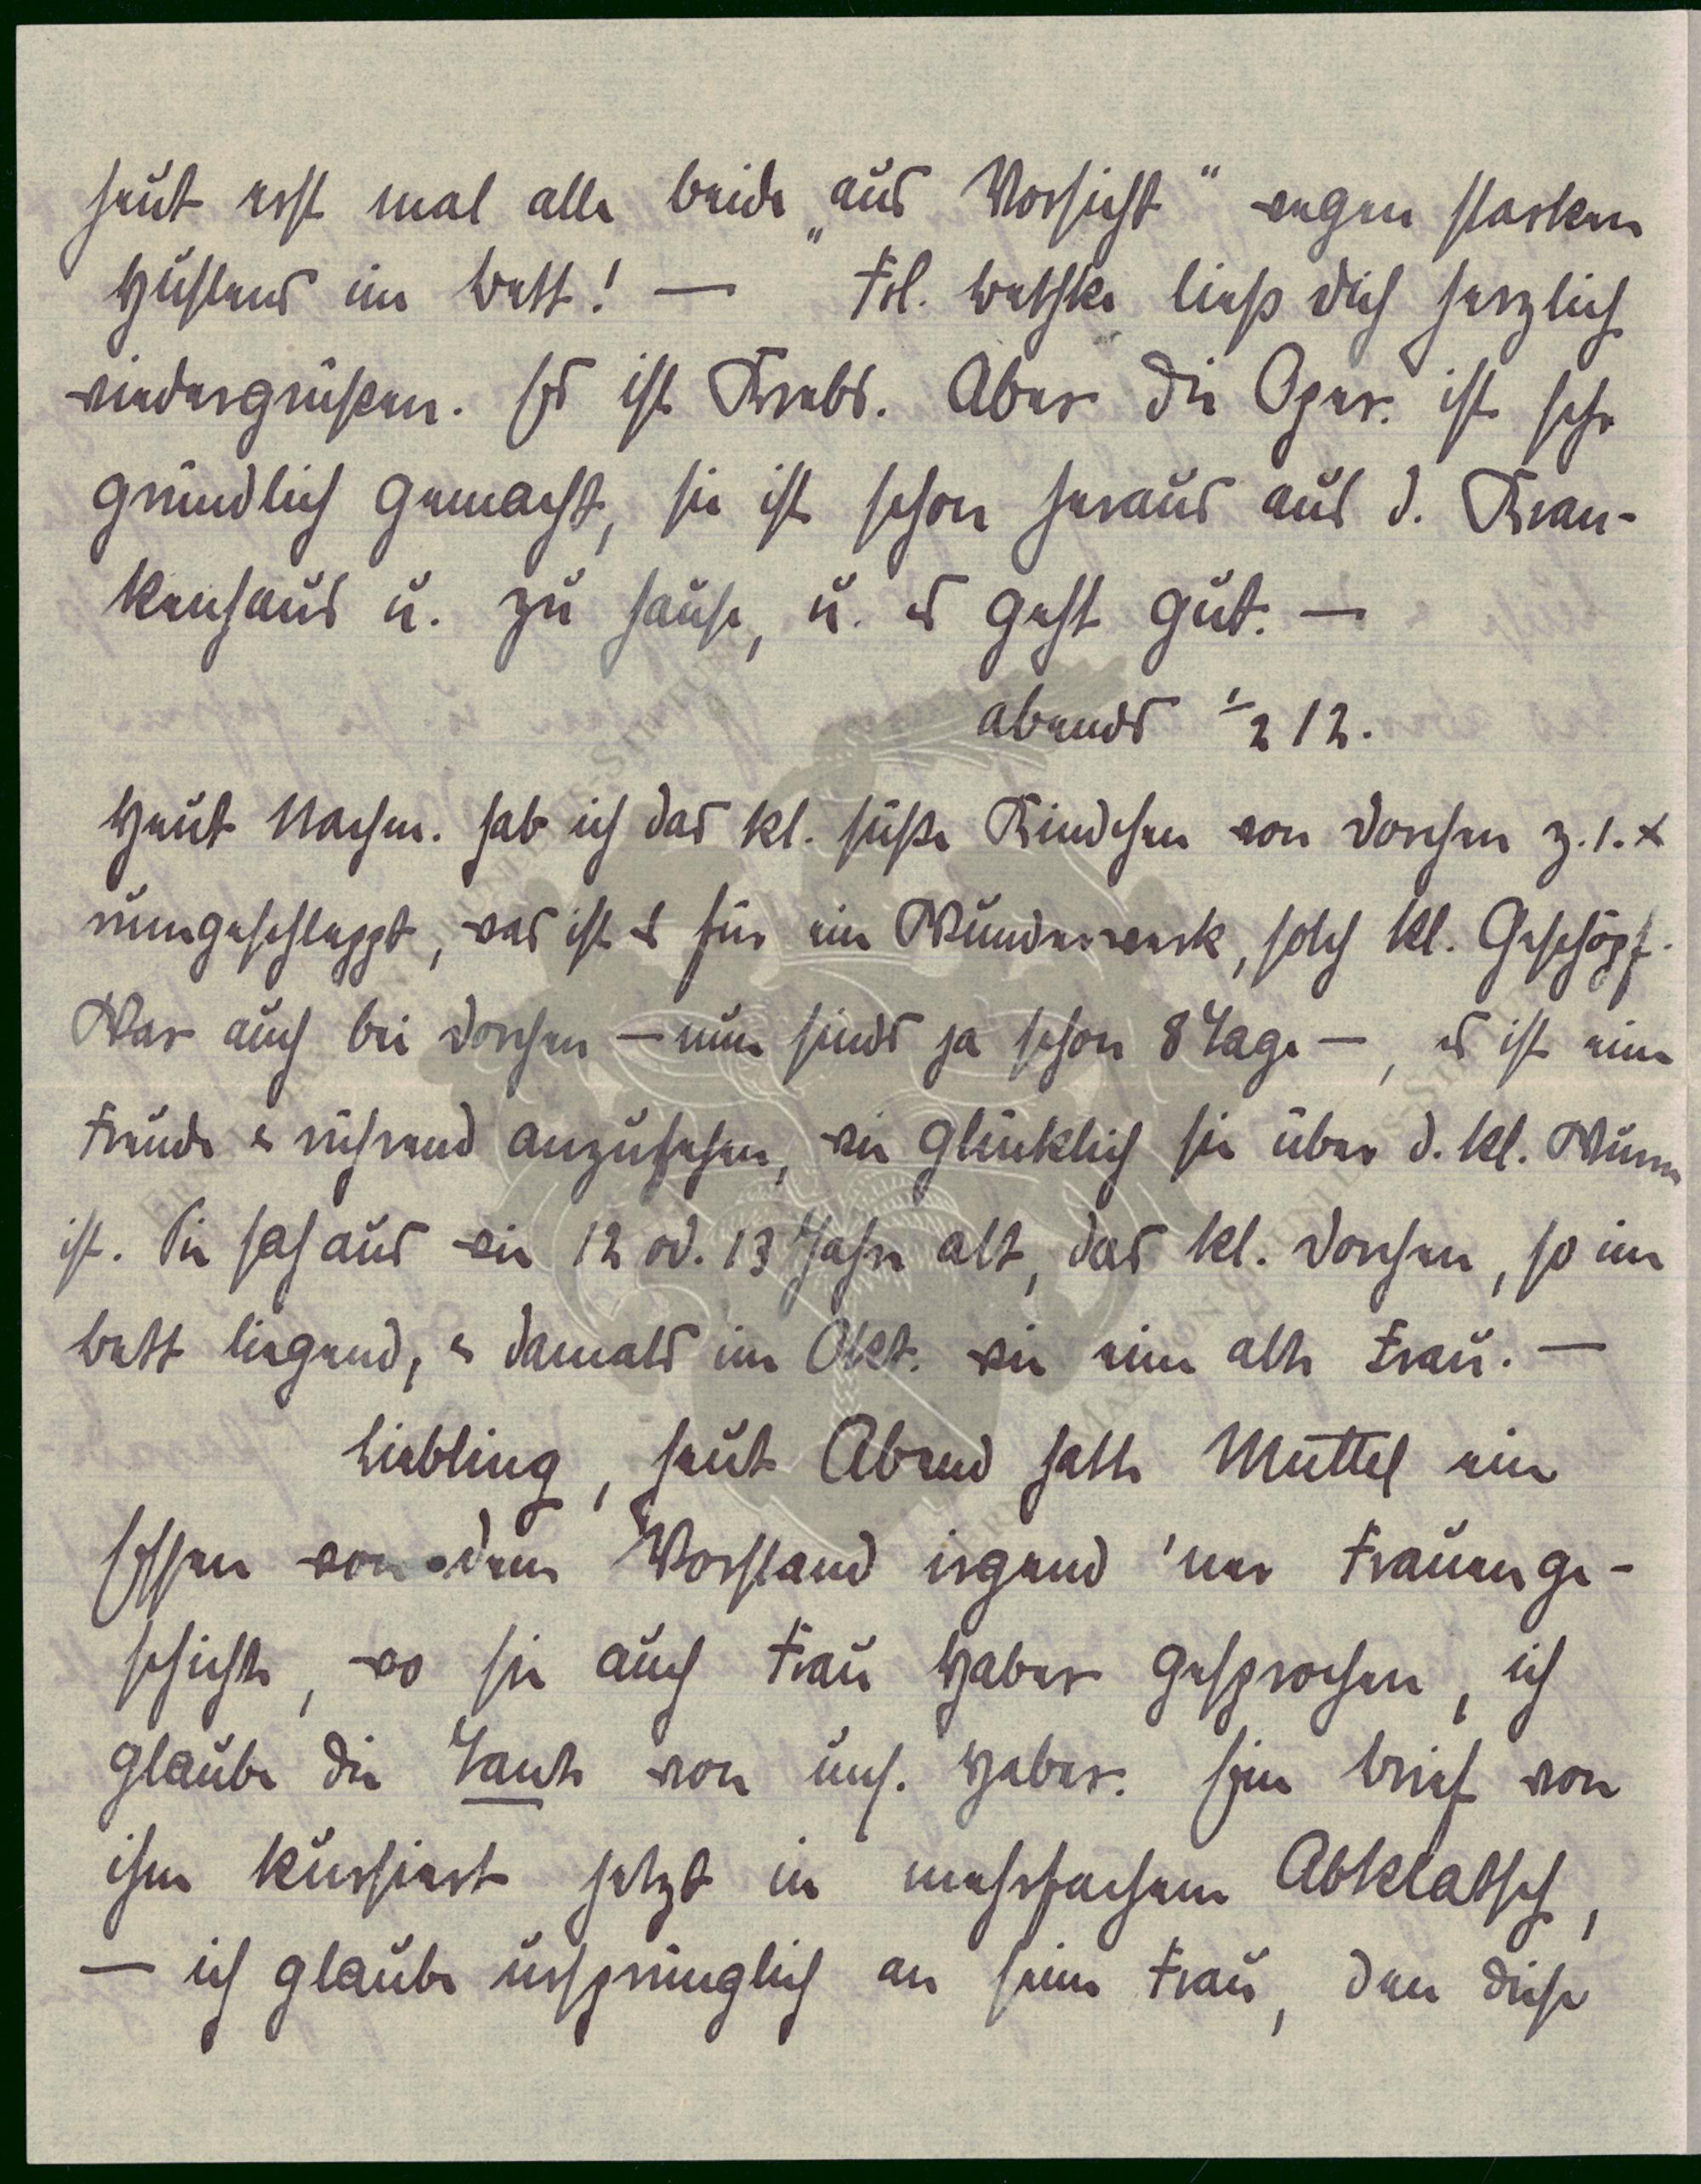 heut erst mal alle beide „aus Vorsicht“ wegen starken
Hustens im Bett! — Frl. Bethke ließ Dich herzlich
wiedergrüßen. Es ist Krebs. Aber die Oper. ist sehr
gründlich gemacht, sie ist schon heraus aus d. Kran-
kenhaus u. zu Hause, u. es geht gut. —
abends ½ 12.
Heut Nachm. hab ich das kl. süße Kindchen von Dorchen z. 1. x
rumgeschleppt, was ist es für ein Wunderwerk, solch kl. Geschöpf.
War auch bei Dorchen — nun sinds ja schon 8 Tage —, es ist eine
Freude & rührend anzusehen, wie glücklich sie über d. kl. Wurm
ist. Sie sah aus wie 12 od. 13 Jahre alt, das kl. Dorchen, so im
Bett liegend, & damals im Okt. wie eine alte Frau. —
Liebling, heut Abend hatte Muttel ein
Essen von dem Vorstand irgend 'ner Frauenge-
schichte, wo sie auch Frau Haber gesprochen, ich
glaube die Tante von uns. Haber. Ein Brief von
ihm kursiert jetzt in mehrfachem Abklatsch,
— ich glaube ursprünglich an seine Frau, den diese